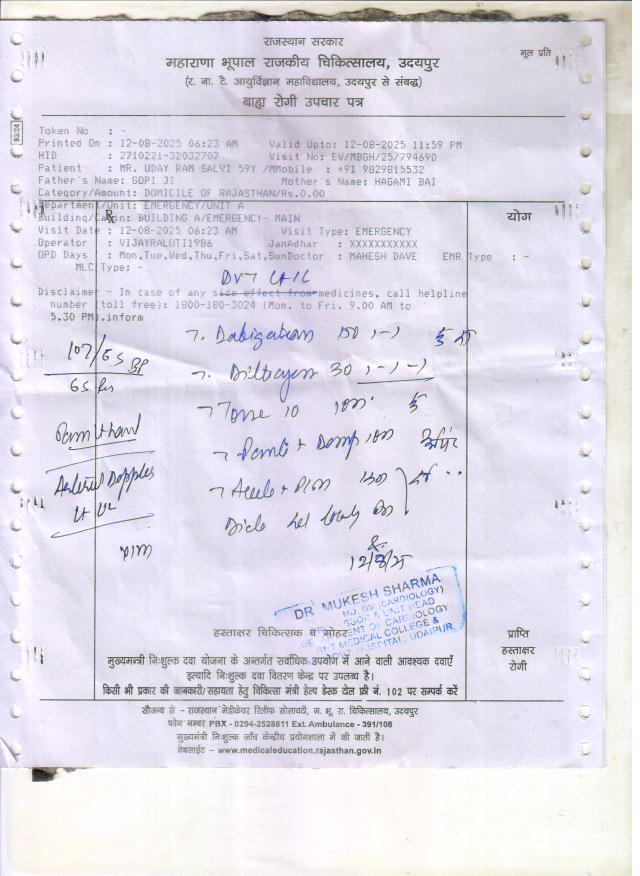 राजस्थान सरकार
मूल प्रति
महाराणा भूपाल राजकीय चिकित्सालय, उदयपुर
(र. ना. टै. आयुर्विज्ञान महाविद्यालय, उदयपुर से संबद्ध)
बाह्य रोगी उपचार पत्र
93/24
Token No : -
Printed On : 12-08-2025 06:23 AM Valid Upto: 12-08-2025 11:59 PM
HID : 2710221-32032707 Visit No: EV/MBGH/25/794690
Patient : MR. UDAY RAM SALVI 59Y /MMobile : +91 9829815532
Father's Name: GOPI JI Mother's Name: HAGAMI BAI
Category/Amount: DOMICILE OF RAJASTHAN/Rs.0.00
Department/Unit: EMERGENCY/UNIT A
Rx
योग
Building/Cabin: BUILDING A/EMERGENCY- MAIN
Visit Date : 12-08-2025 06:23 AM Visit Type: EMERGENCY
Operator : VIJAYRALOTI1986 JanAdhar : XXXXXXXXXXX
OPD Days : Mon,Tue,Wed,Thu,Fri,Sat,SunDoctor : MAHESH DAVE EMR Type : -
MLC Type: -
DVT
Disclaimer - In case of any side effect from medicines, call helpline
number (toll free): 1800-180-3024 (Mon. to Fri. 9.00 AM to
5.30 PM).inform
Dabigatran 150 1-1
107/65 BP
Diltiazem 30 1-1-1
65
10
+ Domp
Arterial Doppler
locally
12/8/25
DR MUKESH SHARMA
MD, DM (CARDIOLOGY)
UNIT HEAD
DEPARTMENT OF CARDIOLOGY
RNT MEDICAL COLLEGE &
GOVT HOSPITAL, UDAIPUR
हस्ताक्षर चिकित्सक व मोहर
प्राप्ति
हस्ताक्षर
रोगी
मुख्यमन्त्री निःशुल्क दवा योजना के अन्तर्गत सर्वाधिक उपयोग में आने वाली आवश्यक दवाएँ
इत्यादि निःशुल्क दवा वितरण केन्द्र पर उपलब्ध है।
किसी भी प्रकार की जानकारी/सहायता हेतु चिकित्सा मंत्री हेल्प डेस्क टोल फ्री नं. 102 पर सम्पर्क करें
सौजन्य से - राजस्थान मेडीकेयर रिलीफ सोसायटी, म. भू. रा. चिकित्सालय, उदयपुर
फोन नम्बर PBX - 0294-2528811 Ext. Ambulance - 391/108
मुख्यमंत्री निःशुल्क जाँच केन्द्रीय प्रयोगशाला में की जाती है।
वेबसाईट - www.medicaleducation.rajasthan.gov.in